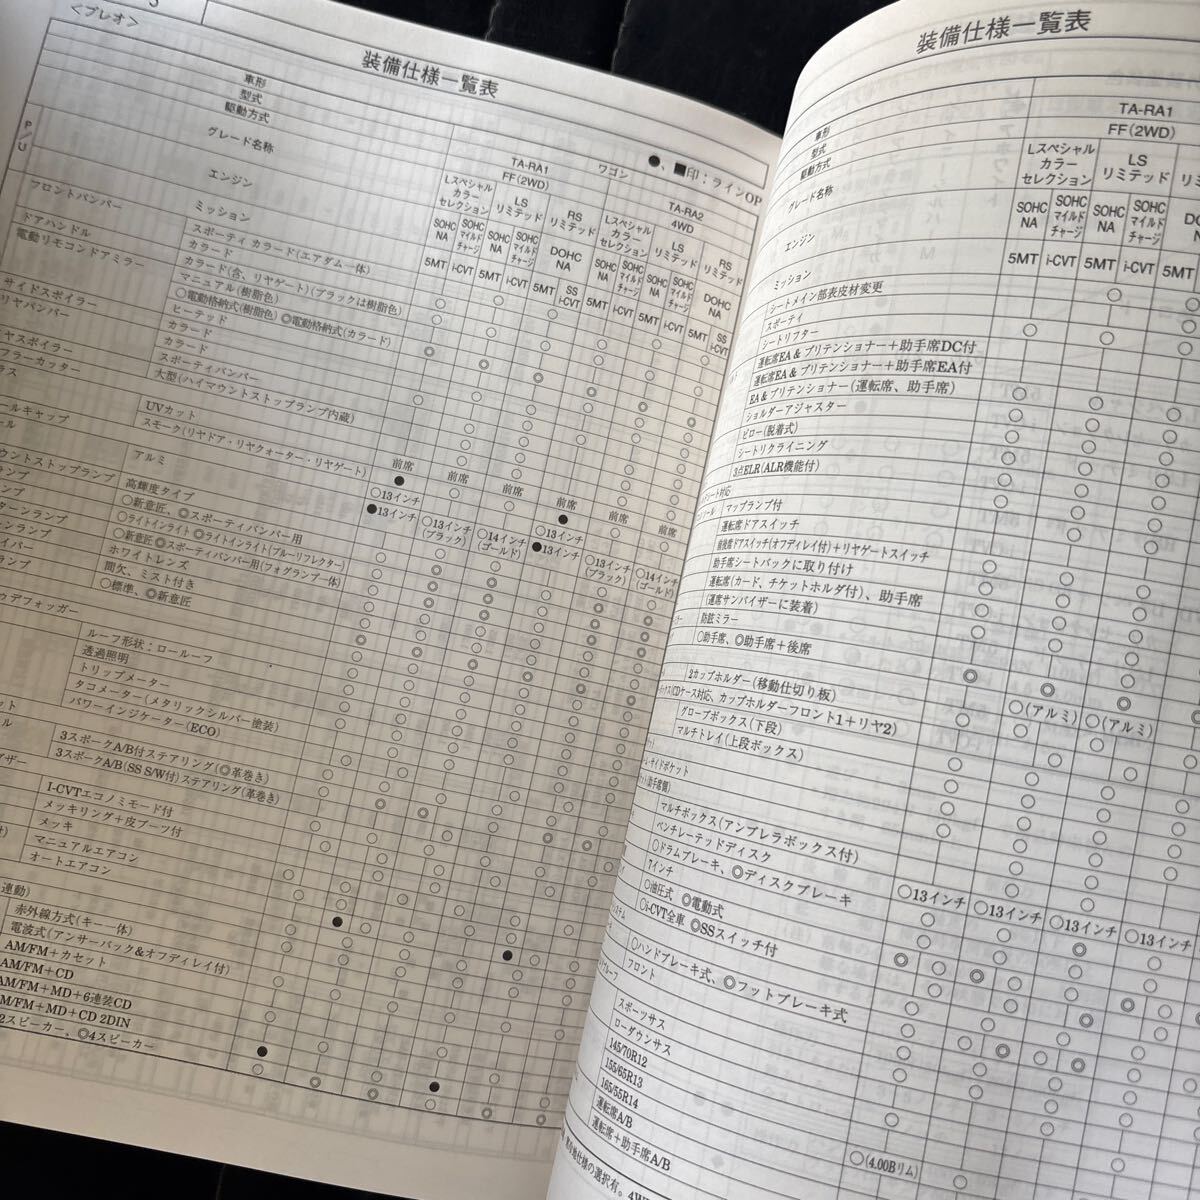 ＜プレオ＞
装備仕様一覧表
●、■印：ラインOP
車形
ワゴン
型式
TA-RA1
TA-RA2
駆動方式
FF(2WD)
4WD
P/U
グレード名称
Lスペシャル
カラー
セレクション
LS
リミテッド
RS
リミテッド
Lスペシャル
カラー
セレクション
LS
リミテッド
RS
リミテッド
エンジン
SOHC
NA
SOHC
マイルド
チャージ
SOHC
NA
SOHC
マイルド
チャージ
DOHC
NA
SOHC
NA
SOHC
マイルド
チャージ
SOHC
NA
SOHC
マイルド
チャージ
DOHC
NA
ミッション
5MT
i-CVT
5MT
i-CVT
5MT
SS
i-CVT
5MT
i-CVT
5MT
i-CVT
5MT
SS
i-CVT
フロントバンパー
スポーティ カラード(エアダム一体)
カラード
ドアハンドル
カラード(含、リヤゲート)(ブラックは樹脂色)
電動リモコンドアミラー
マニュアル(樹脂色)
○電動格納式(樹脂色) ◎電動格納式(カラード)
ヒーテッド
サイドスポイラー
カラード
リヤバンパー
カラード
スポーティバンパー
大型(ハイマウントストップランプ内蔵)
UVカット
前席
前席
前席
前席
前席
前席
スモーク(リヤドア・リヤクォーター・リヤゲート)
アルミ
○13インチ
●13インチ
○13インチ
(ブラック)
○14インチ
(ゴールド)
○13インチ
●13インチ
○13インチ
(ブラック)
○14インチ
(ゴールド)
高輝度タイプ
○新意匠、◎スポーティバンパー用
○ライトインライト ◎ライトインライト(ブルーリフレクター)
○新意匠 ◎スポーティバンパー用(フォグランプ一体)
ホワイトレンズ
間欠、ミスト付き
○標準、◎新意匠
ルーフ形状：ロールーフ
透過照明
トリップメーター
タコメーター(メタリックシルバー塗装)
パワーインジケーター(ECO)
3スポークA/B付ステアリング(◎革巻き)
3スポークA/B(SS S/W付)ステアリング(革巻き)
I-CVTエコノミモード付
メッキリング＋皮ブーツ付
メッキ
マニュアルエアコン
オートエアコン
連動)
赤外線方式(キー一体)
電波式(アンサーバック&オフディレイ付)
AM/FM＋カセット
AM/FM＋CD
AM/FM＋MD＋6連装CD
AM/FM＋MD＋CD 2DIN
2スピーカー、◎4スピーカー
装備仕様一覧表
車形
型式
TA-RA1
駆動方式
FF(2WD)
グレード名称
Lスペシャル
カラー
セレクション
LS
リミテッド
エンジン
SOHC
NA
SOHC
マイルド
チャージ
SOHC
NA
SOHC
マイルド
チャージ
ミッション
5MT
i-CVT
5MT
i-CVT
シートメイン部表皮材変更
スポーティ
シートリフター
運転席EA & プリテンショナー＋助手席DC付
運転席EA & プリテンショナー＋助手席EA付
EA & プリテンショナー(運転席、助手席)
ショルダーアジャスター
ピロー(脱着式)
シートリクライニング
3点ELR(ALR機能付)
マップランプ付
運転席ドアスイッチ
前後席ドアスイッチ(オフディレイ付)＋リヤゲートスイッチ
助手席シートバックに取り付け
運転席(カード、チケットホルダ付)、助手席
(運席サンバイザーに装着)
防眩ミラー
○助手席、◎助手席＋後席
2カップホルダー(移動仕切り板)
ボックス(CDケース対応、カップホルダーフロント1＋リヤ2)
○(アルミ)
○(アルミ)
グローブボックス(下段)
マルチトレイ(上段ボックス)
マルチボックス(アンブレラボックス付)
ベンチレーテッドディスク
○13インチ
○13インチ
○13インチ
○13インチ
○ドラムブレーキ、◎ディスクブレーキ
7インチ
○油圧式 ◎電動式
○i-CVT全車 ◎SSスイッチ付
○ハンドブレーキ式、◎フットブレーキ式
フロント
スポーツサス
ローダウンサス
145/70R12
155/65R13
165/55R14
○(4.00Bリム)
運転席A/B
運転席＋助手席A/B